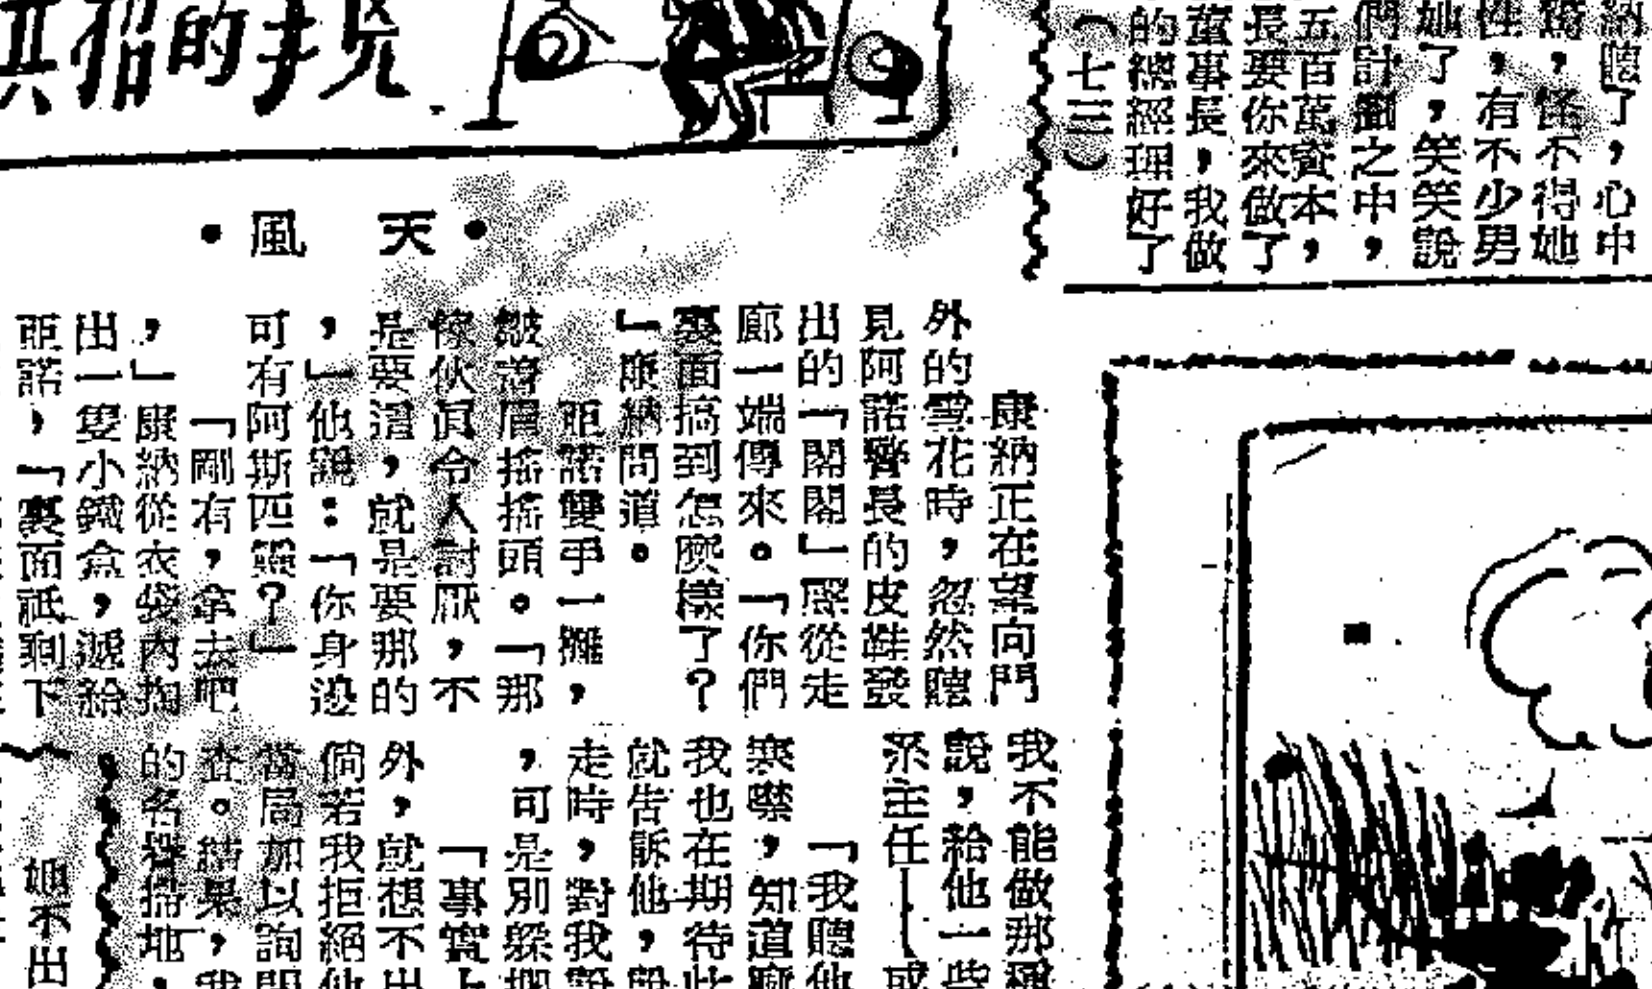 納聽了，心中
，怪不得她
性，有不少男
她了，笑笑說
們計劃之中，
五百萬資本，
長要你來做了
董事長，我做
的總經理好了
（七三）
供招的手兇
・天　風・
康納正在望向門
外的雪花時，忽然聽
見阿諾警長的皮鞋發
出的「閣閣」聲從走
廊一端傳來。「你們
裏面搞到怎麼樣了？
」康納問道。
亞諾雙手一攤，
皺着眉搖搖頭。「那
傢伙眞令人討厭，不
是要這，就是要那的
，」他說：「你身邊
可有阿斯匹靈？」
「剛有，拿去吧
，」康納從衣袋內掏
出一隻小鐵盒，遞給
亞諾，「裏面祇剩下
我不能做那種
說，給他一些
系主任——或
「我聽他
寒噤，知道麻
我也在期待此
就告訴他，設
走時，對我說
，可是別躲
「事實上
外，就想不出
倘若我拒絕他
當局加以詢問
查。結果，我
的名譽掃地，
她不出